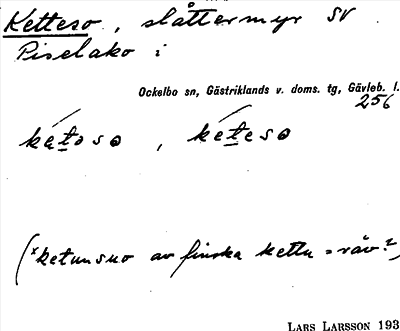 Ketteso, slåttermyr SV
Piselako i
Ockelbo sn, Gästriklands v. doms. tg, Gävleb. l.
256
kétoso, kéteso
(*ketunsuo av finska kettu = räv?)
LARS LARSSON 193